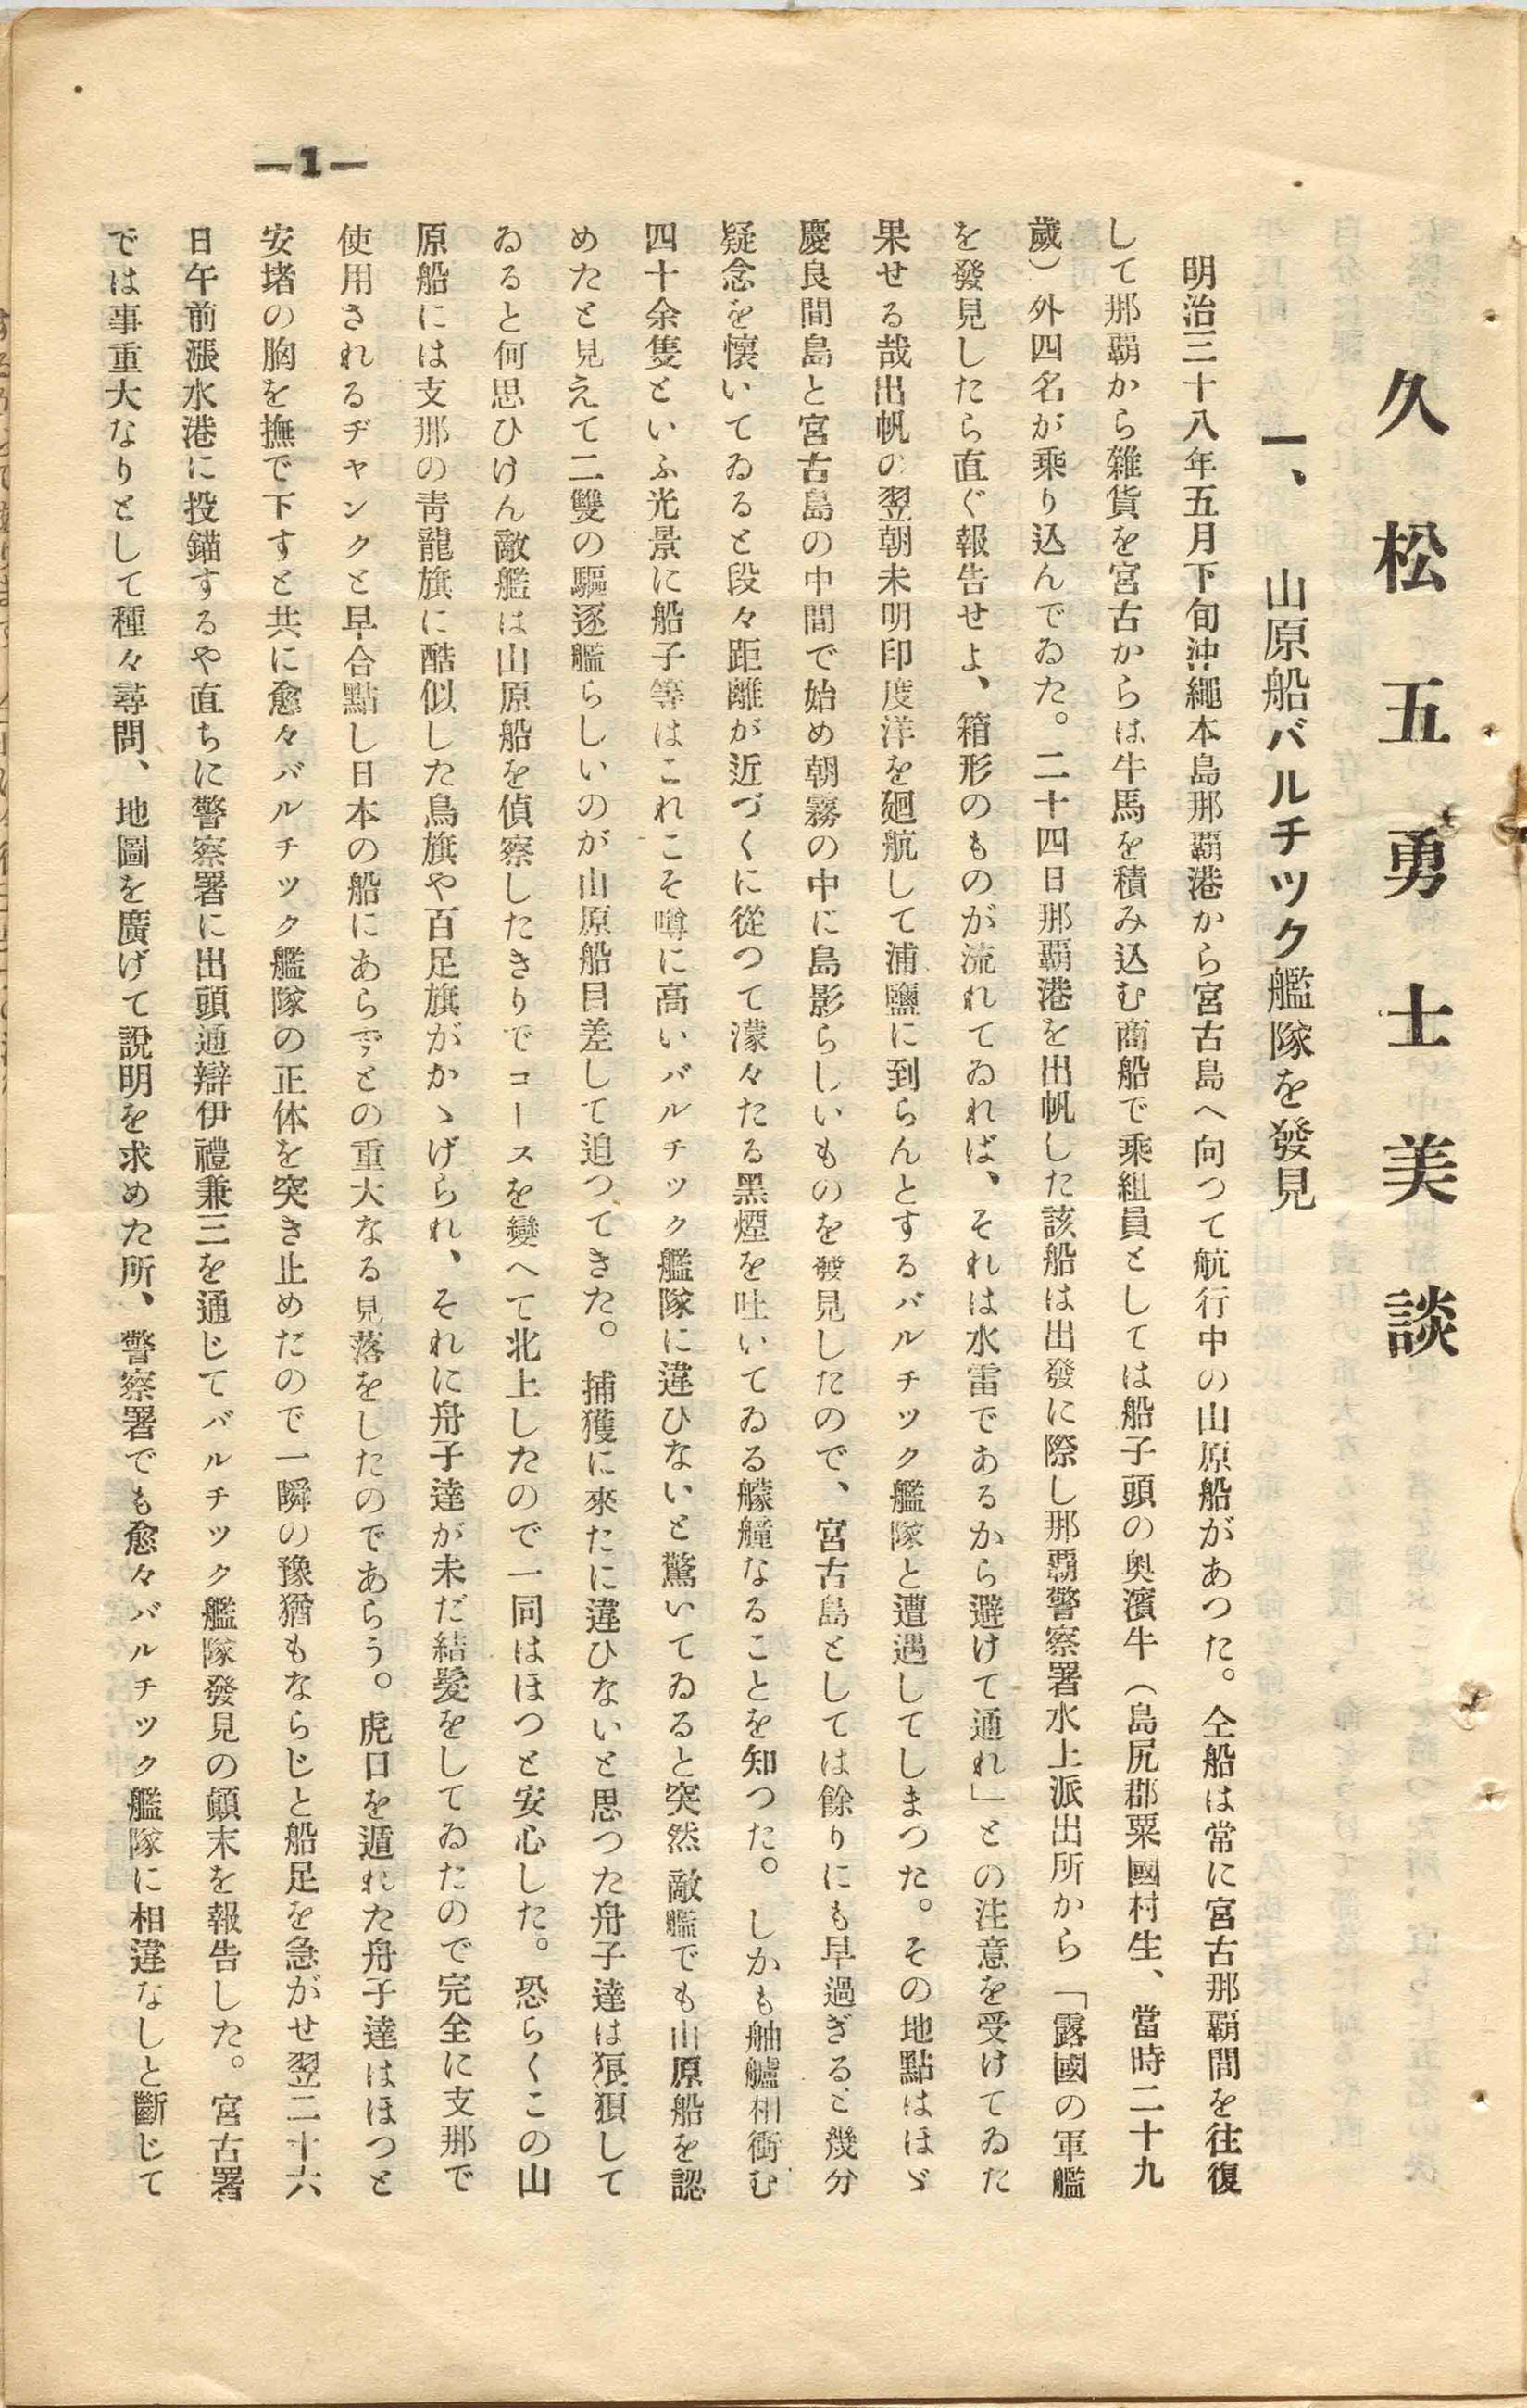 久松五勇士美談
一、 山原船バルチック艦隊を發見
明治三十八年五月下旬沖繩本島那覇港から宮古島へ向つて航行中の山原船があつた。仝船は常に宮古那覇間を往復
して那覇から雜貨を宮古からは牛馬を積み込む商船で乘組員としては船子頭の奧濱牛（島尻郡粟國村生、當時二十九
歲）外四名が乘り込んでゐた。二十四日那覇港を出帆した該船は出發に際し那覇警察署水上派出所から「露國の軍艦
を發見したら直ぐ報告せよ、箱形のものが流れてゐれば、それは水雷であるから避けて通れ」との注意を受けてゐた
果せる哉出帆の翌朝未明印度洋を廻航して浦鹽に到らんとするバルチック艦隊と遭遇してしまつた。その地點はほゞ
慶良間島と宮古島の中間で始め朝霧の中に島影らしいものを發見したので、宮古島としては餘りにも早過ぎると幾分
疑念を懷いてゐると段々距離が近づくに從つて濛々たる黑煙を吐いてゐる艨艟なることを知つた。しかも舳艫相衝む
四十余隻といふ光景に船子等はこれこそ噂に高いバルチック艦隊に違ひないと驚いてゐると突然敵艦でも山原船を認
めたと見えて二雙の驅逐艦らしいのが山原船目差して迫つてきた。捕獲に來たに違ひないと思つた舟子達は狼狽して
ゐると何思ひけん敵艦は山原船を偵察したきりでコースを變へて北上したので一同はほつと安心した。恐らくこの山
原船には支那の靑龍旗に酷似した鳥旗や百足旗がかゝげられ、それに舟子達が未だ結髮をしてゐたので完全に支那で
使用されるヂャンクと早合點し日本の船にあらずとの重大なる見落をしたのであらう。虎口を遁れた舟子達はほつと
安堵の胸を撫で下すと共に愈々バルチック艦隊の正体を突き止めたので一瞬の豫猶もならじと船足を急がせ翌二十六
日午前漲水港に投錨するや直ちに警察署に出頭通辯伊禮兼三を通じてバルチック艦隊發見の顚末を報告した。宮古署
では事重大なりとして種々尋問、地圖を廣げて說明を求めた所、警察署でも愈々バルチック艦隊に相違なしと斷じて
—1—